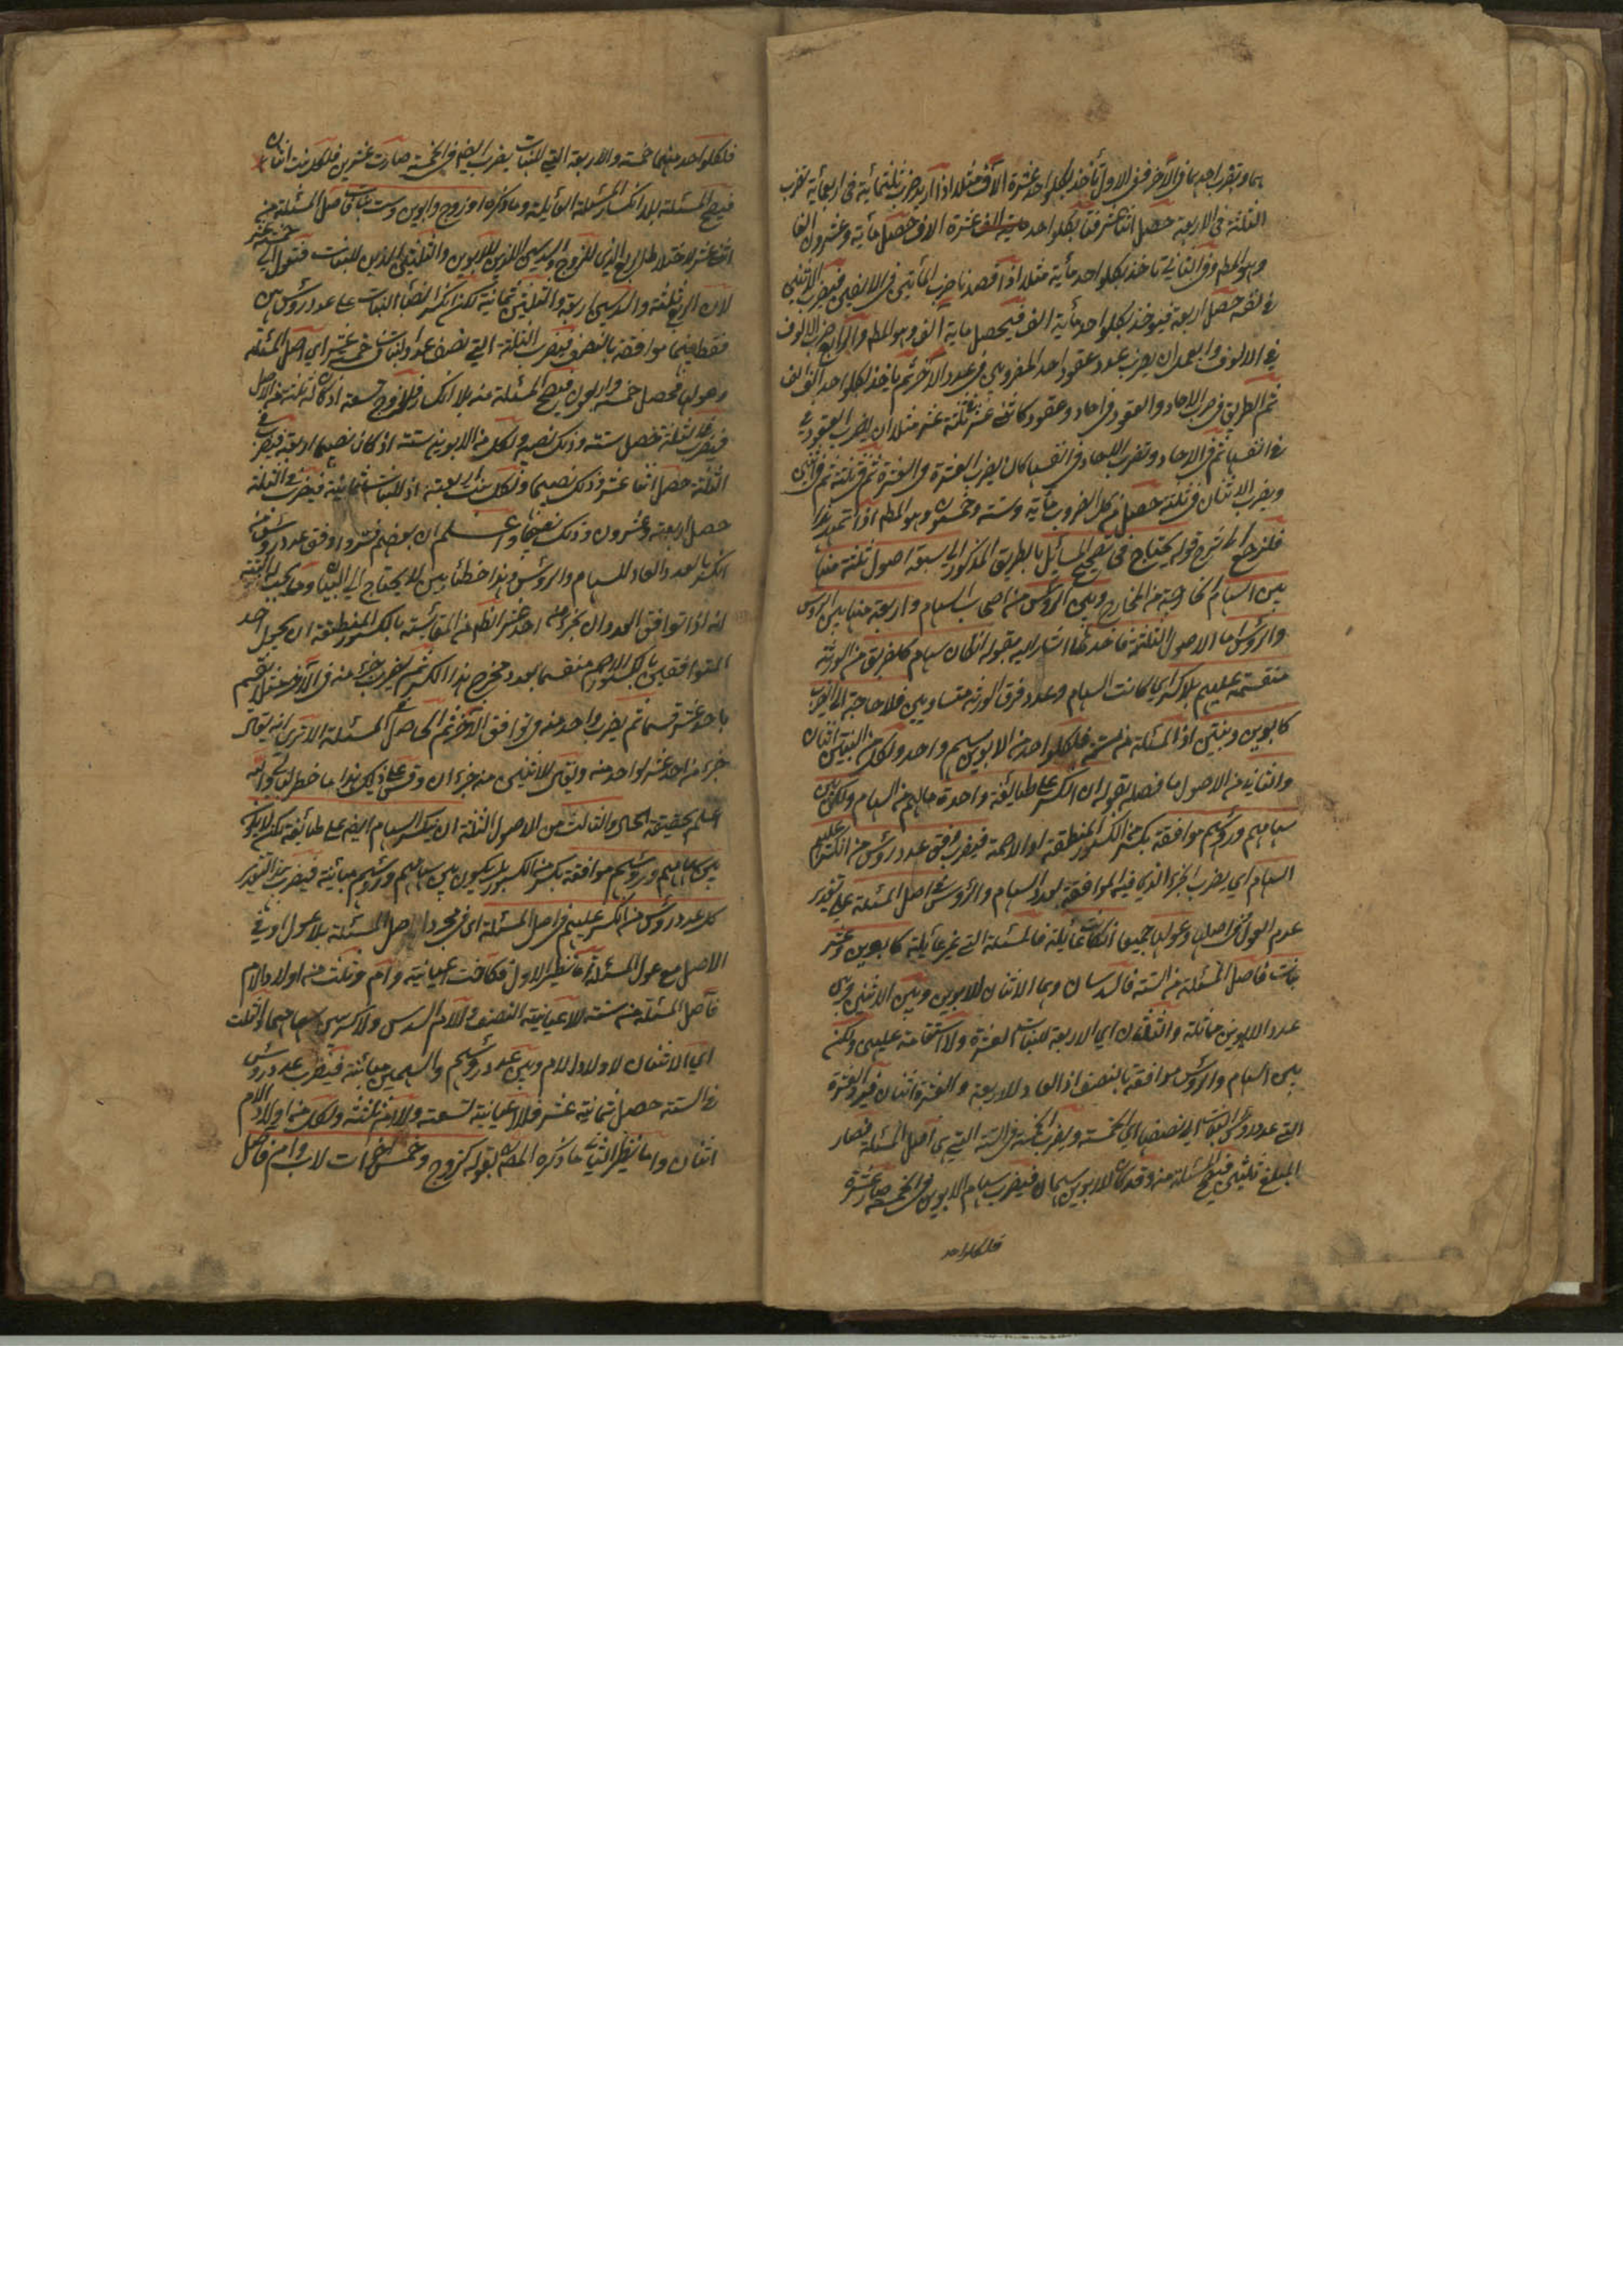 هما ويضرب احدهما في الآخر ففي الاول تأخذ لكل واحد عشرة الآف مثلا اذا اريد ضرب ثلثمائية في اربعمائية تضرب
الثلثة في الاربعة حصل اثنا عشر فتأخذ لكل واحد عشرة الاف حصل مائة وعشرون الفا
وهو المط وفي الثاني تأخذ لكل واحد مائية مثلا اذا قصدنا ضرب المأتين في الالفين فيضرب الاثنين
في نفسه حصل اربعة فيؤخذ لكل واحد مأية الف فيحصل
في الالوف والعمل ان يضرب عدد عقود احد المضروبين في عدد الآخر ثم يأخذ لكل واحد الف الف
ثم الطريق في ضرب الاحاد والعقود في احاد وعقود كاثني عشر في ثلثة عشر مثلا ان يضرب العقود
في انفسها ثم في الاحاد وتضرب الاحاد في انفسها كان يضرب العشرة في العشرة ثم في ثلثة ثم في اثنين
ويضرب الاثنان في ثلثة حصل من كل الضروب مأية وستة وخمسون وهو المط اذا تمهد هذا
فلنرجع الى شرح قوله يحتاج في تصحيح المسائل بالطريق المذكور الى سبعة اصول ثلثة منها
بين السهام الخارجة من المخارج وبين الرؤس من اصحاب السهام واربعة منها بين الرؤس
والرؤس اما الاصول الثلثة فاحدها اشار اليه بقوله ان كان سهام كل فريق من الورثة
منقسمة عليهم بلا كسر اي كانت السهام وعدد فرق الورثة متساويين فلا حاجة الى الضرب
كابوين وبنتين اذ المسئلة من ستة فلكل واحد من الابوين سهم واحد ولكل من البنتين اثنان
والثاني من الاصول ما فصله بقوله ان انكسر على طايفة واحدة مالهم من السهام ولكن بين
سهامهم ورؤسهم موافقة بكسر من الكسور المنطقة او الاصمة فيضرب وفق عدد رؤس من انكسر عليهم
السهام اي يضرب الجزء الذي فيه الموافقة لعدد السهام والرؤس في اصل المسئلة على تقدير
عدم العول في اصلها وعولها جميعا ان كانت عائلة فالمسئلة التي غير عائلة كابوين وعشر
بنات فاصل المسئلة من الستة فالسدسان وهما الاثنان للابوين وبين الاثنين وبين
عدد الابوين مماثلة والثلثان اي الاربعة للبنات العشرة ولا استقامة عليهن ولكن
بين السهام والرؤس موافقة بالنصف اذ العاد للاربعة والعشرة اثنان فيرد العشرة
التي عدد رؤس البنات الى نصفها اي الخمسة ويضرب الخمسة في الستة التي هي اصل المسئلة فصار
المبلغ ثلثين فيصح المسئلة منه وقد كان للابوين سهمان فيضرب سهام الابوين في الخمسة صار عشرة
فلكل واحد
فلكل واحد منهما خمسة والاربعة التي للبنات يضرب ايضا في الخمسة صارت عشرين فلكل بنت اثنان
فيصح المسئلة بلا انكسار المسئلة العائلة وما ذكره او زوج وابوين وست بنات فاصل المسئلة من
اثني عشر لاختلاط الربع الذي للزوج والسدسين اللذين للابوين والثلثين اللذين للبنات فتعول الى خمسة عشر
لان الربع ثلثة والسدسين اربعة والثلثين ثمانية لكن انكسر انصباء البنات على عدد رؤسهن
فقط بينهما موافقة بالنصف فيضرب الثلثة التي نصف عدد البنات في خمسة عشر اي اصل المسئلة
وعولها فحصل خمسة واربعون فيصح المسئلة منه بلا انكسار فللزوج تسعة اذ كان له ثلثة من الاصل
فيضرب في الثلثة حصل ستة وذلك نصيبه ولكل من الابوين ستة اذ كان نصيبهما اربعة فيضرب في
الثلثة حصل اثنا عشر وذلك نصيبهما ولكل بنت اربعة اذ للبنات ثمانية فيضرب في الثلثة
حصل اربعة وعشرون وذلك نصيبها واعلم ان بعضهم فسروا وفق عدد رؤس من
انكسر بالعدد العاد للسهام والرؤس وهذا خطأ بين لا يحتاج الى البيان ومما يجب التنبيه
انه اذا توافق العددان بجزء من احد عشر
المتوافقين بالكسور الاصم منقسما بعدد مخرج هذا الكسر ثم يضرب جزء منه في الآخر مثلا يقسم
باحد عشر قسما ثم يضرب واحد منه في توافق الآخر ثم الحاصل في المسئلة الا ترى انه يقال
جزء من احد عشر لواحد منه ويقال للاثنين منه جزءان وقس على ذلك هذا ما خطر ببالي والله
اعلم بحقيقة الحال والثالث من الاصول الثلثة ان ينكسر السهام ايضا على طائفة لكن لا يكون
بين سهامهم ورؤسهم موافقة بكسر من الكسور بل يكون بين سهامهم ورؤسهم مباينة فيضرب بهذا التقدير
كل عدد رؤس من انكسر عليهم في اصل المسئلة اي في مجرد اصل المسئلة بلا عول او في
الاصل مع عول المسئلة اما نظير الاول فكاخت عيانية وام وثلث من اولاد الام
فاصل المسئلة من ستة للاعيانية النصف وللام السدس ولا كسر بين سهامهما والثلث
اي الاثنان لاولاد الام وبين عدد رؤسهم والسهمين مباينة فيضرب عدد رؤسهم
في الستة حصل ثمانية عشر فللاعيانية تسعة وللام ثلثة ولكل من اولاد الام
اثنان واما نظير الثاني ما ذكره المصنف بقوله كزوج وخمس اخوات لاب وام فاصل